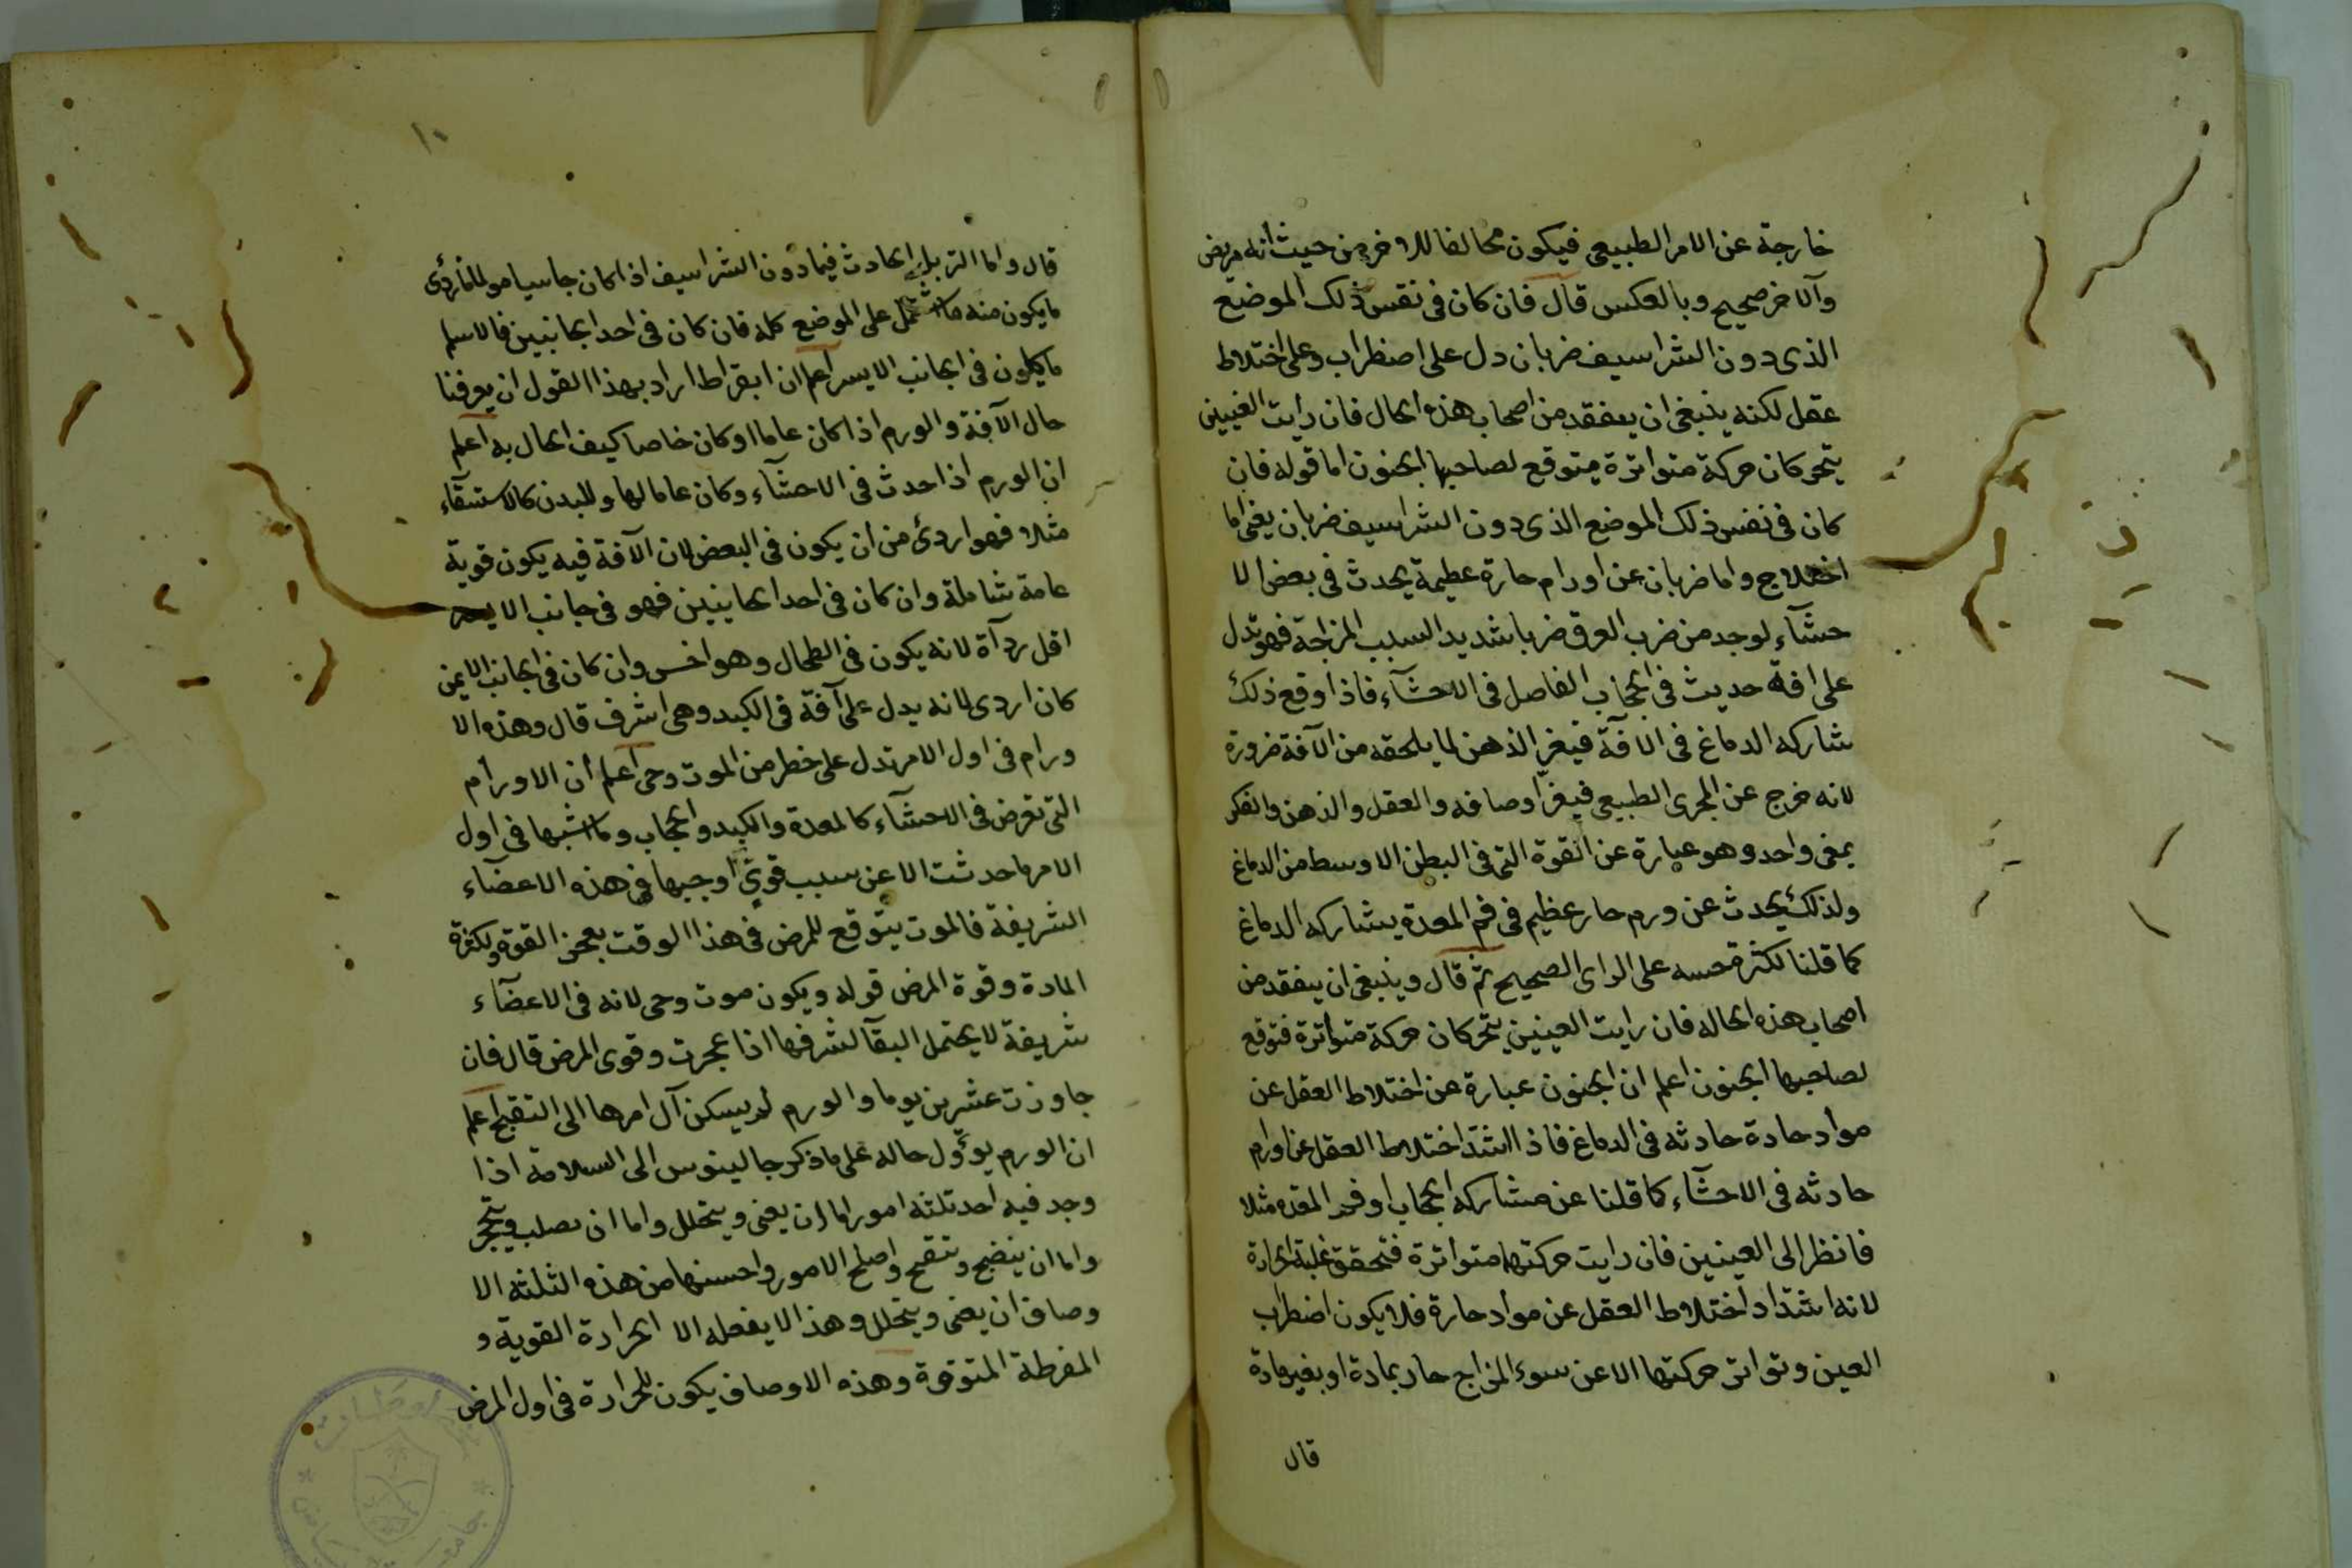 خارجة عن الامر الطبيعى فيكون مخالفا للاخر من حيث انه مريض
والاخر صحيح وبالعكس قال فان كان فى نفس ذلك الموضع
الذى دون الشراسيف ضربان دل على اضطراب وعلى اختلاط
عقل لكنه ينبغى ان يتفقد من اصحاب هذه الحال فان رايت العينين
يتحركان حركة متواترة فيتوقع لصاحبها الجنون اما قوله فان
كان فى نفس ذلك الموضع الذى دون الشراسيف ضربان يعنى اما
اختلاج واما ضربان عن اورام حارة عظيمة يحدث فى بعض الا
حشآء لوجد من ضرب العرق ضربا شديد السبب المزاجة فهو تدل
على افة حديث فى الحجاب الفاصل فى الاحشآء فاذا وقع ذلك
شاركه الدماغ فى الآفة فيغير الذهن لما يلحقه من الآفة ضرورة
لانه خرج عن المجرى الطبيعى فيغير اوصافه والعقل والذهن والفكر
بمعنى واحد وهو عبارة عن القوة التى فى البطن الاوسط من الدماغ
ولذلك يحدث عن ورم حار عظيم فى فم المعدة يشاركه الدماغ
كما قلنا لكثرة حسه على الراى الصحيح ثم قال وينبغى ان يتفقد من
اصحاب هذه الحاله فان رايت العينين يتحركان حركة متواترة فتوقع
لصاحبها الجنون اعلم ان الجنون عبارة عن اختلاط العقل عن
مواد حادة حادثه فى الدماغ فاذا اشتد اختلاط العقل عن اورام
حادثه فى الاحشآء كما قلنا عن مشاركه الحجاب او فم المعده مثلا
فانظر الى العينين فان رايت حركتهما متواترة فتحقق غلبة الحرارة
لانه اشتداد اختلاط العقل عن مواد حارة فلا يكون اضطراب
العين وتواتر حركتها الا عن سوء المزاج حار بمادة او بغير مادة
قال
١٠
قال واما التربل الحادث فيما دون الشراسيف اذا كان جاسيا مولما فاردى
ما يكون منه ما اشتمل على الموضع كله فان كان فى احد الجانبين فالاسلم
ما يكون فى الجانب الايسر اعلم ان ابقراط اراد بهذا القول ان يعرفنا
حال الآفة والورم اذا كان عاما او كان خاصا كيف الحال به اعلم
ان الورم اذا حدث فى الاحشآء وكان عاما لها وللبدن كالاستسقآء
مثلا فهو اردئ من ان يكون فى البعض لان الآفة فيه يكون قوية
عامة شاملة وان كان فى احد الجانبين فهو فى جانب الايسر
اقل ردآة لانه يكون فى الطحال وهو اخس وان كان فى الجانب الايمن
كان اردى لانه يدل على آفة فى الكبد وهى اشرف قال وهذه الا
ورام فى اول الامر تدل على خطر من الموت وحى اعلم ان الاورام
التى تعرض فى الاحشآء كالمعدة والكبد والحجاب وما اشبهها فى اول
الامر ما حدثت الا عن سبب قوى اوجبها فى هذه الاعضآء
الشريفة فالموت يتوقع للمرض فى هذا الوقت بعجز القوة ولكثرة
المادة وقوة المرض قوله ويكون موت وحى لانه فى الاعضآء
شريفة لا يحتمل البقآ لشرفها اذا عجزت وقوى المرض قال فان
جاوزت عشرين يوما والورم لم يسكن آل امرها الى التقيح اعلم
ان الورم يوؤل حاله على ما ذكر جالينوس الى السلامة اذا
وجد فيه احد ثلثه امور اما ان يفنى ويتحلل واما ان يصلب ويتحجر
واما ان ينضج وتتقيح واصلح الامور واحسنها من هذه الثلثه الا
وصاف ان يفنى ويتحلل وهذا لا يفعله الا الحرارة القوية و
المفرطة المتوقدة وهذه الاوصاف يكون للحرارة فى اول المرض